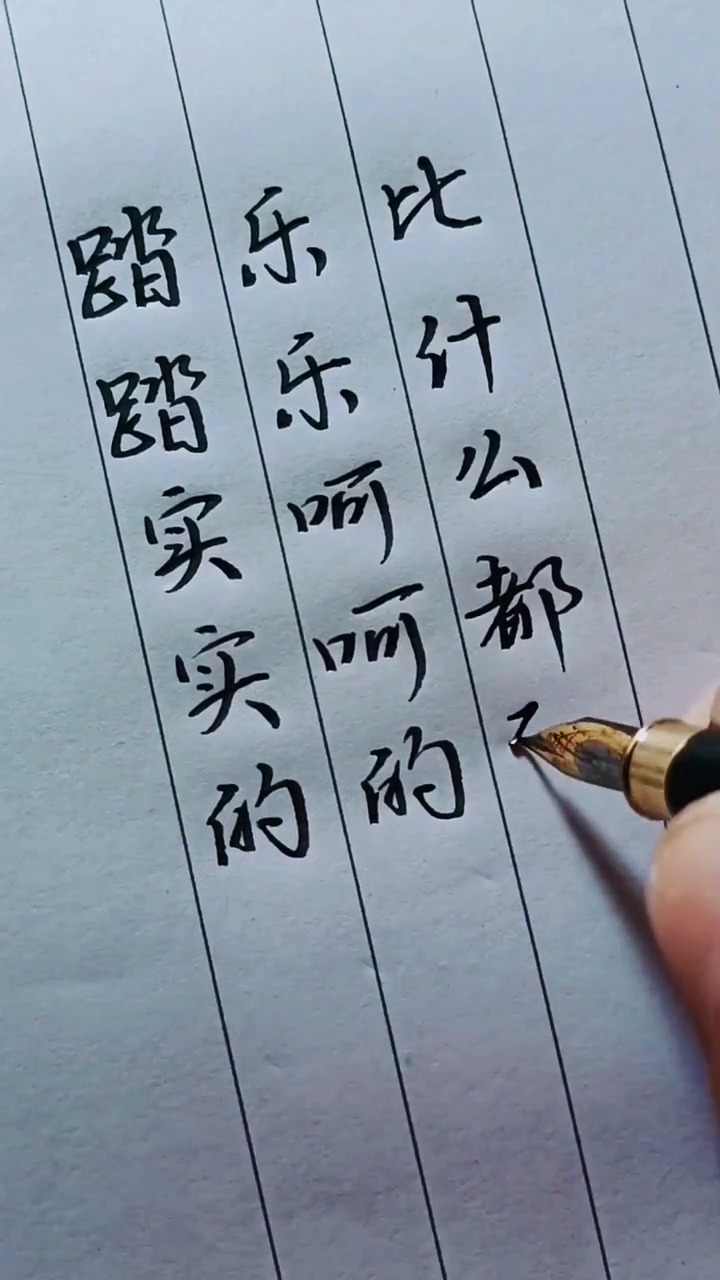 踏踏实实的
乐乐呵呵的
比什么都